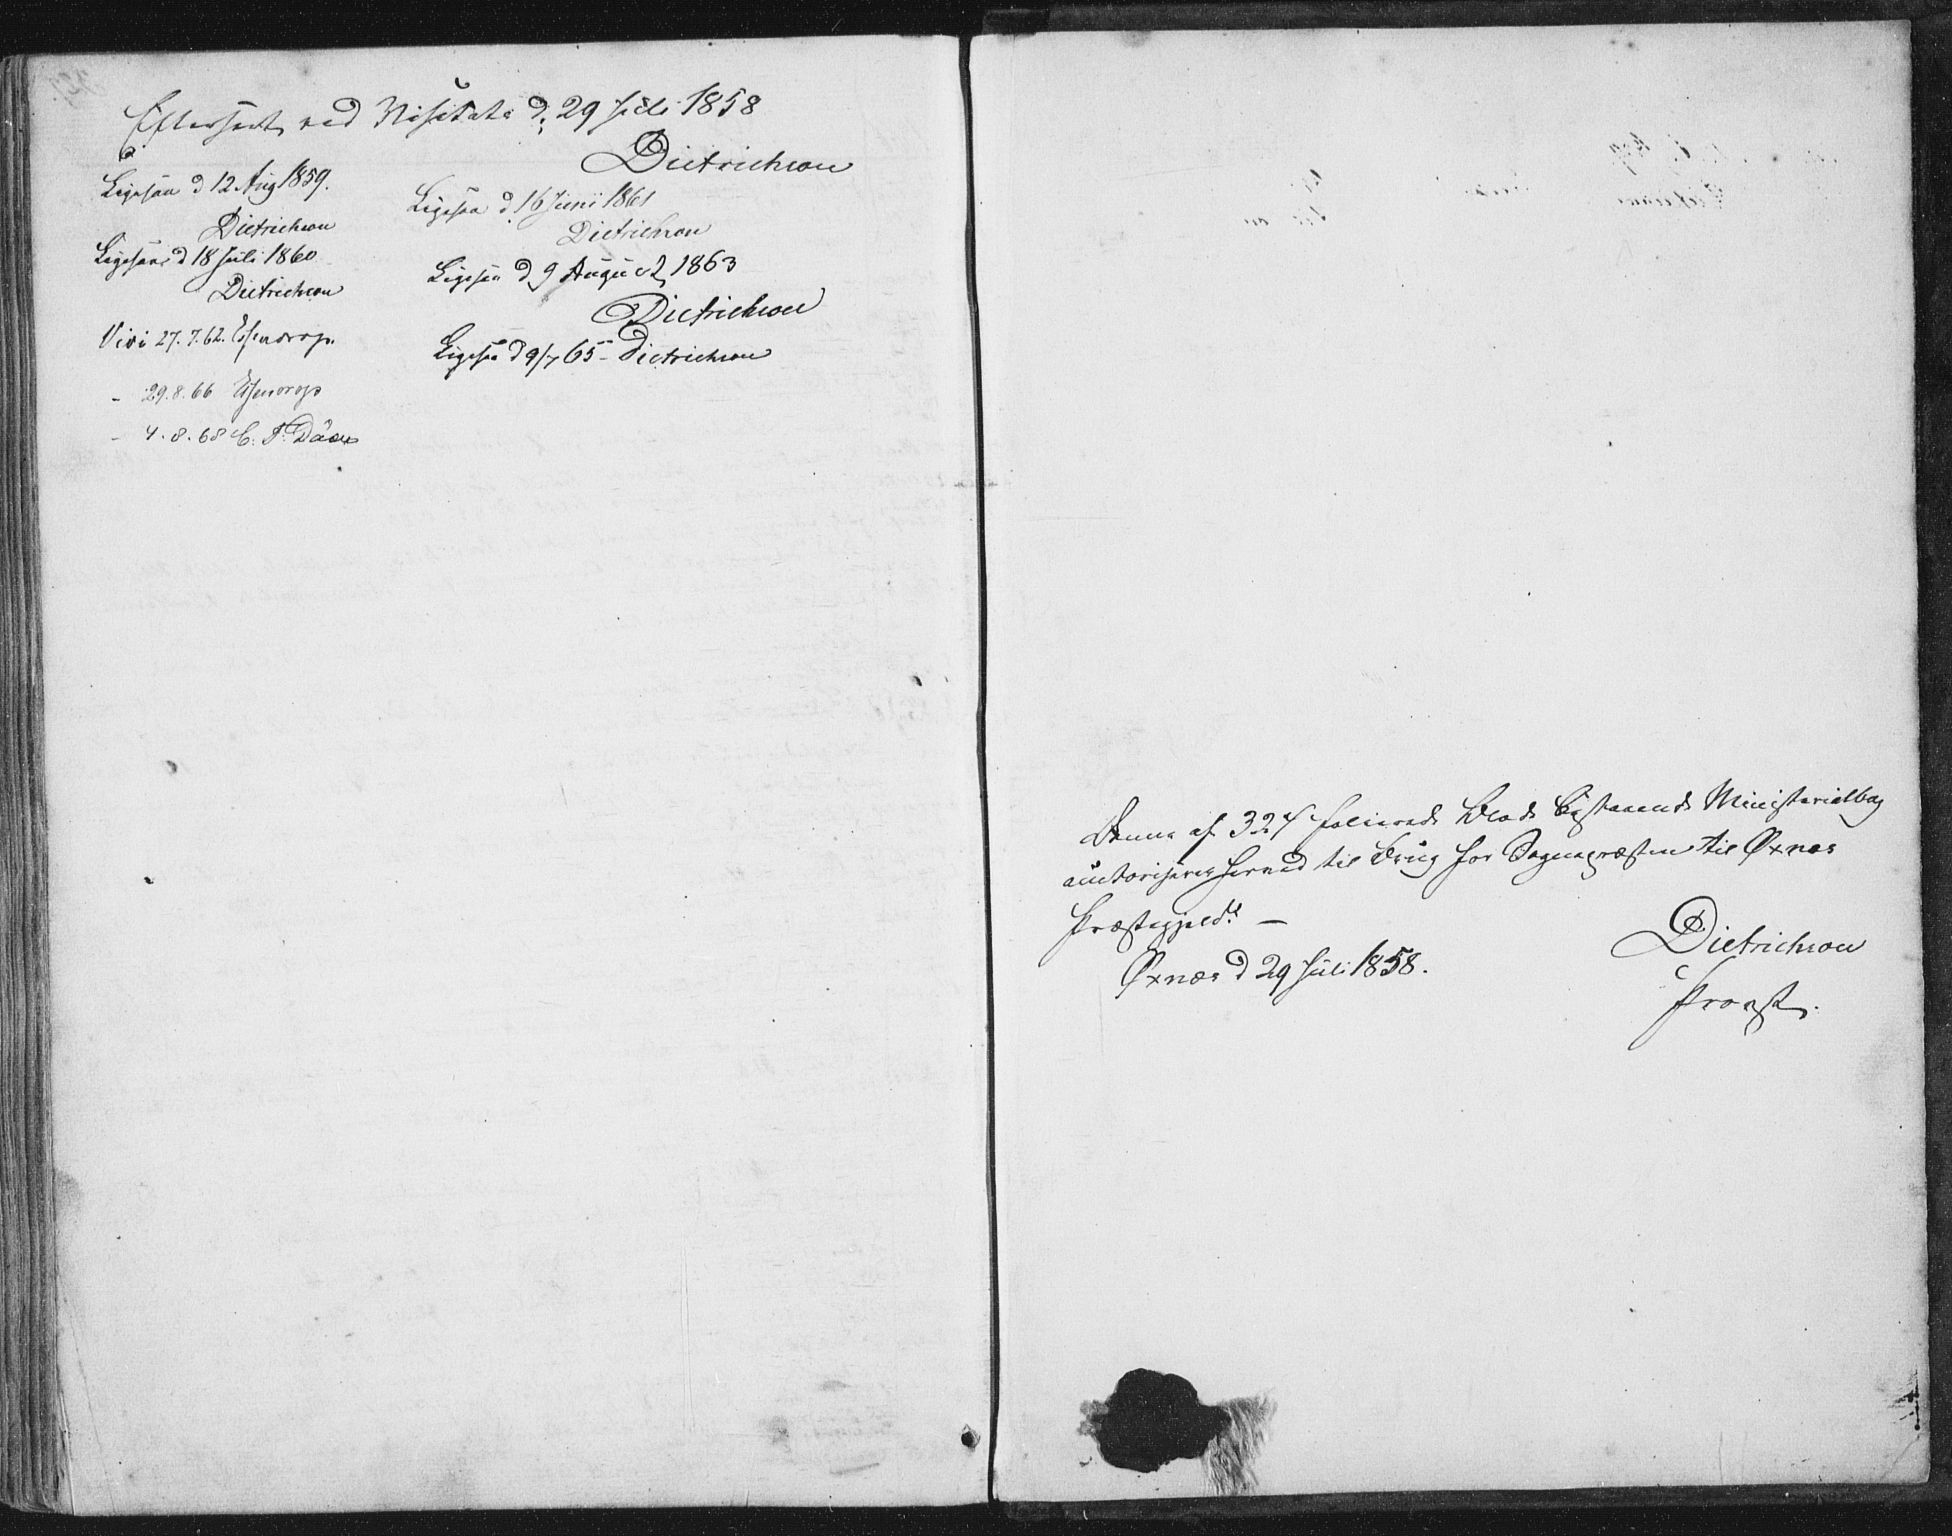 Efterseet ved Visitats d: 29 Juli 1858
Dietrichson
Ligesaa d 12 Aug 1859.
Dietrichson
Ligesaa d 18 Juli 1860
Dietrichson
Vidi 27.7.62. Essendrop.
- 29.8.66 Essendrop
- 4.8.68 C. P. Daae
Ligesaa d 16 Juni 1861
Dietrichson
Ligesaa d 9 August 1863
Dietrichson
Ligesaa d 9/7 65 - Dietrichson
Denne af 324 folierede Blade bestaaende Ministerialbog
autoriseres herved til Brug for Sognepræsten til Øxnæs
Præstegjeld. —
Øxnæs d 29 Juli 1858.
Dietrichson
Provst.